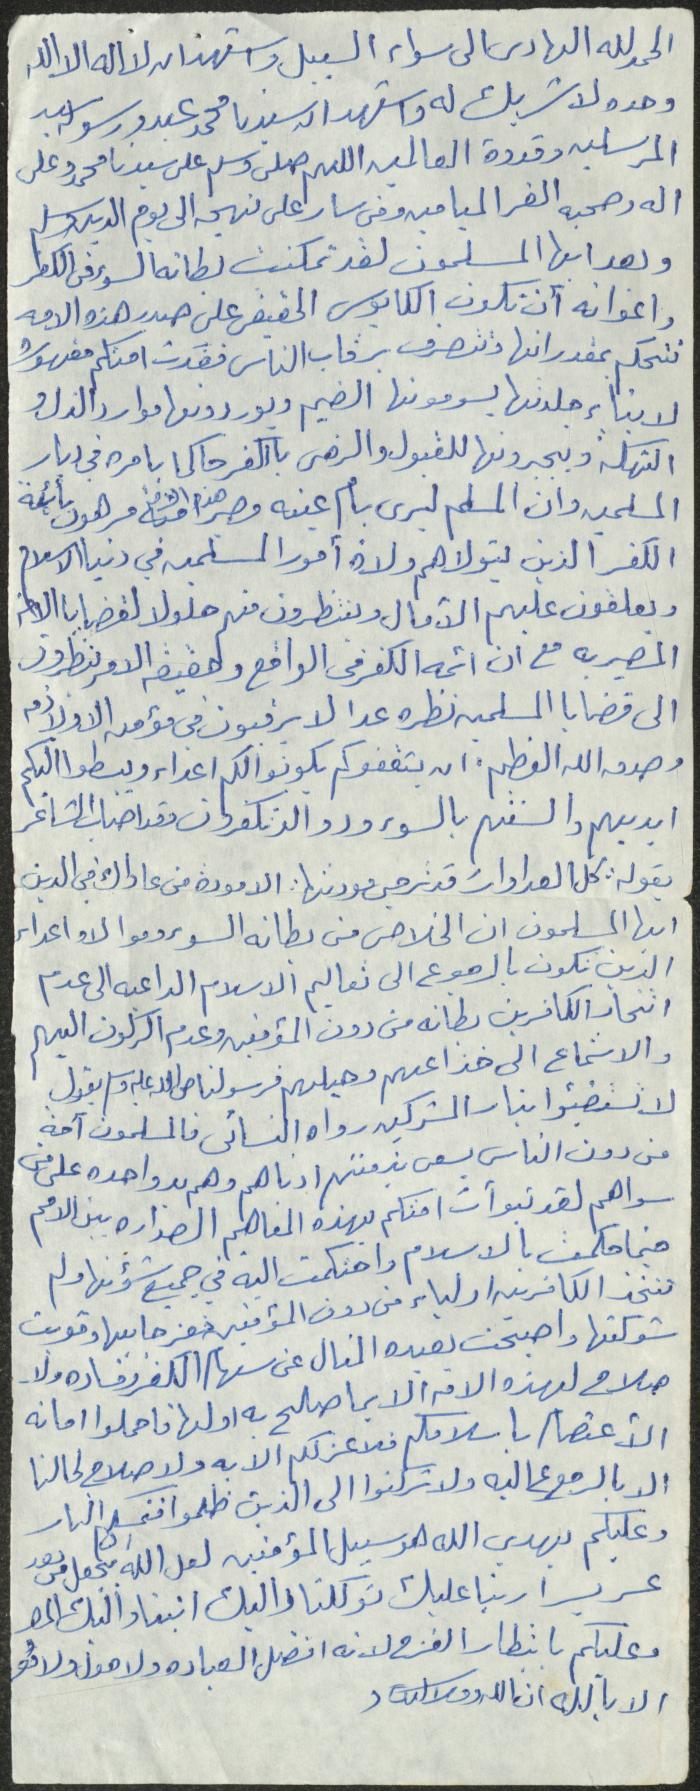 الحمد لله الهادي الى سواء السبيل واشهد ان لا اله الا الله
وحده لا شريك له واشهد ان سيدنا محمد عبده ورسوله سيد
المرسلين وقدوة العالمين اللهم صلى وسلم على سيدنا محمد وعلى
اله وصحبه الغر الميامين ومن سار على نهجه الى يوم الدين وسلم
وبعد ايها المسلمون لقد تمكنت بطانه السوء من الكفر
واعوانه أن تكون الكابوس الحقيقي على صدر هذه الامه
تتحكم بمقدراتها وتتصرف برقاب الناس فغدت امتكم مقهوره
لابناء جلدتها يسومونها الضيم ويوردونها موارد الذل و
التهلكة ويجبرونها للقبول والرضى بالكفر حاكما بامره في ديار
المسلمين وان المسلم ليرى بأم عينه مصير هذه الامة مرهون بأئمة
الكفر الذين يتولاهم ولاة أمور المسلمين في دنيا الاسلام
ويعلقون عليهم الآمال وينتظرون منهم حلولا لقضايا الامة
المصيريه مع أن ائمه الكفر في الواقع وحقيقه الامر ينظرون
الى قضايا المسلمين نظره عدا لا يرقبون في مؤمن الا ولا ذمه
وصدق الله العظيم: ان يثقفوكم يكونوا لكم اعداء ويبسطوا اليكم
ايديهم والسنتهم بالسوء وودوا لو تكفرون وقد اصاب الشاعر
بقوله: كل العداوات قد ترجى مودتها: الا مودة من عاداك في الدين
ايها المسلمون ان الخلاص من بطانه السوء وموالاه اعداء
الدين تكون بالرجوع الى تعاليم الاسلام الداعيه الى عدم
اتخاذ الكافرين بطانه من دون المؤمنين وعدم الركون اليهم
والاستماع الى خداعهم وحيلهم فرسولنا صلى الله عليه وسلم يقول
لا تستضيئوا بنار المشركين رواه النسائي فالمسلمون أمة
من دون الناس يسعى بذمتهم ادناهم وهم يد واحده على من
سواهم لقد تبوأت امتكم بهذه المفاهيم الصداره بين الامم
حينما حكمت بالاسلام واحتكمت اليه في جميع شؤونها ولم
تتخذ الكافرين اولياء من دون المؤمنين فعز جانبها وقويت
شوكتها واصبحت بعيده المنال عن سهام الكفر وفساده ولا
صلاح لهذه الامه الا بما صلح به اولها فاحملوا امانه
الاعتصام باسلامكم فلا عز لكم الا به ولا صلاح لحالنا
الا بالرجوع اليه ولا تركنوا الى الذين ظلموا فتمسكم النار
وعليكم بهدي الله هو سبيل المؤمنين لعل الله ان يجعل من بعد
عسر يسرا ربنا عليك توكلنا واليك انبنا واليك المصير
وعليكم بانتظار الفرج لانه افضل العباده ولا حول ولا قوة
الا بالله